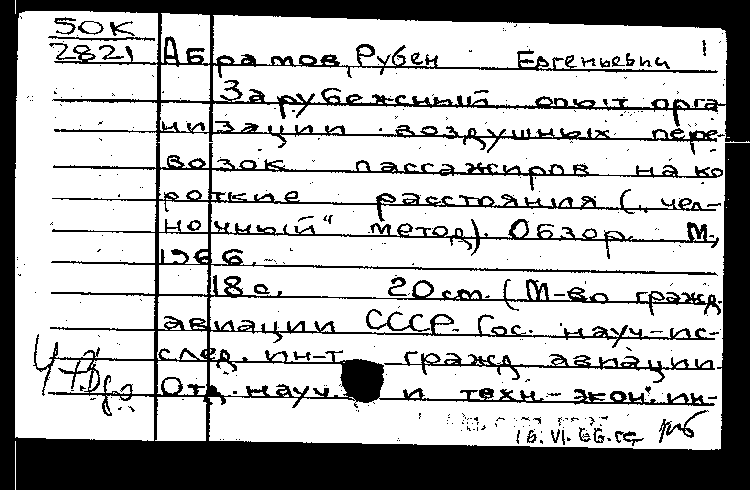 50К
2821
Абрамов, Рубен Евгеньевич 1
Зарубежный опыт орга-
низации воздушных пере-
возок пассажиров на ко
роткие расстояния („чел-
ночный" метод). Обзор. М.,
1966.
18 с. 20 см. (М-во гражд.
авиации СССР. Гос. науч-ис-
след. ин-т гражд авиации.
Отд. науч. и техн.-экон. ин-
16. VI. 66.